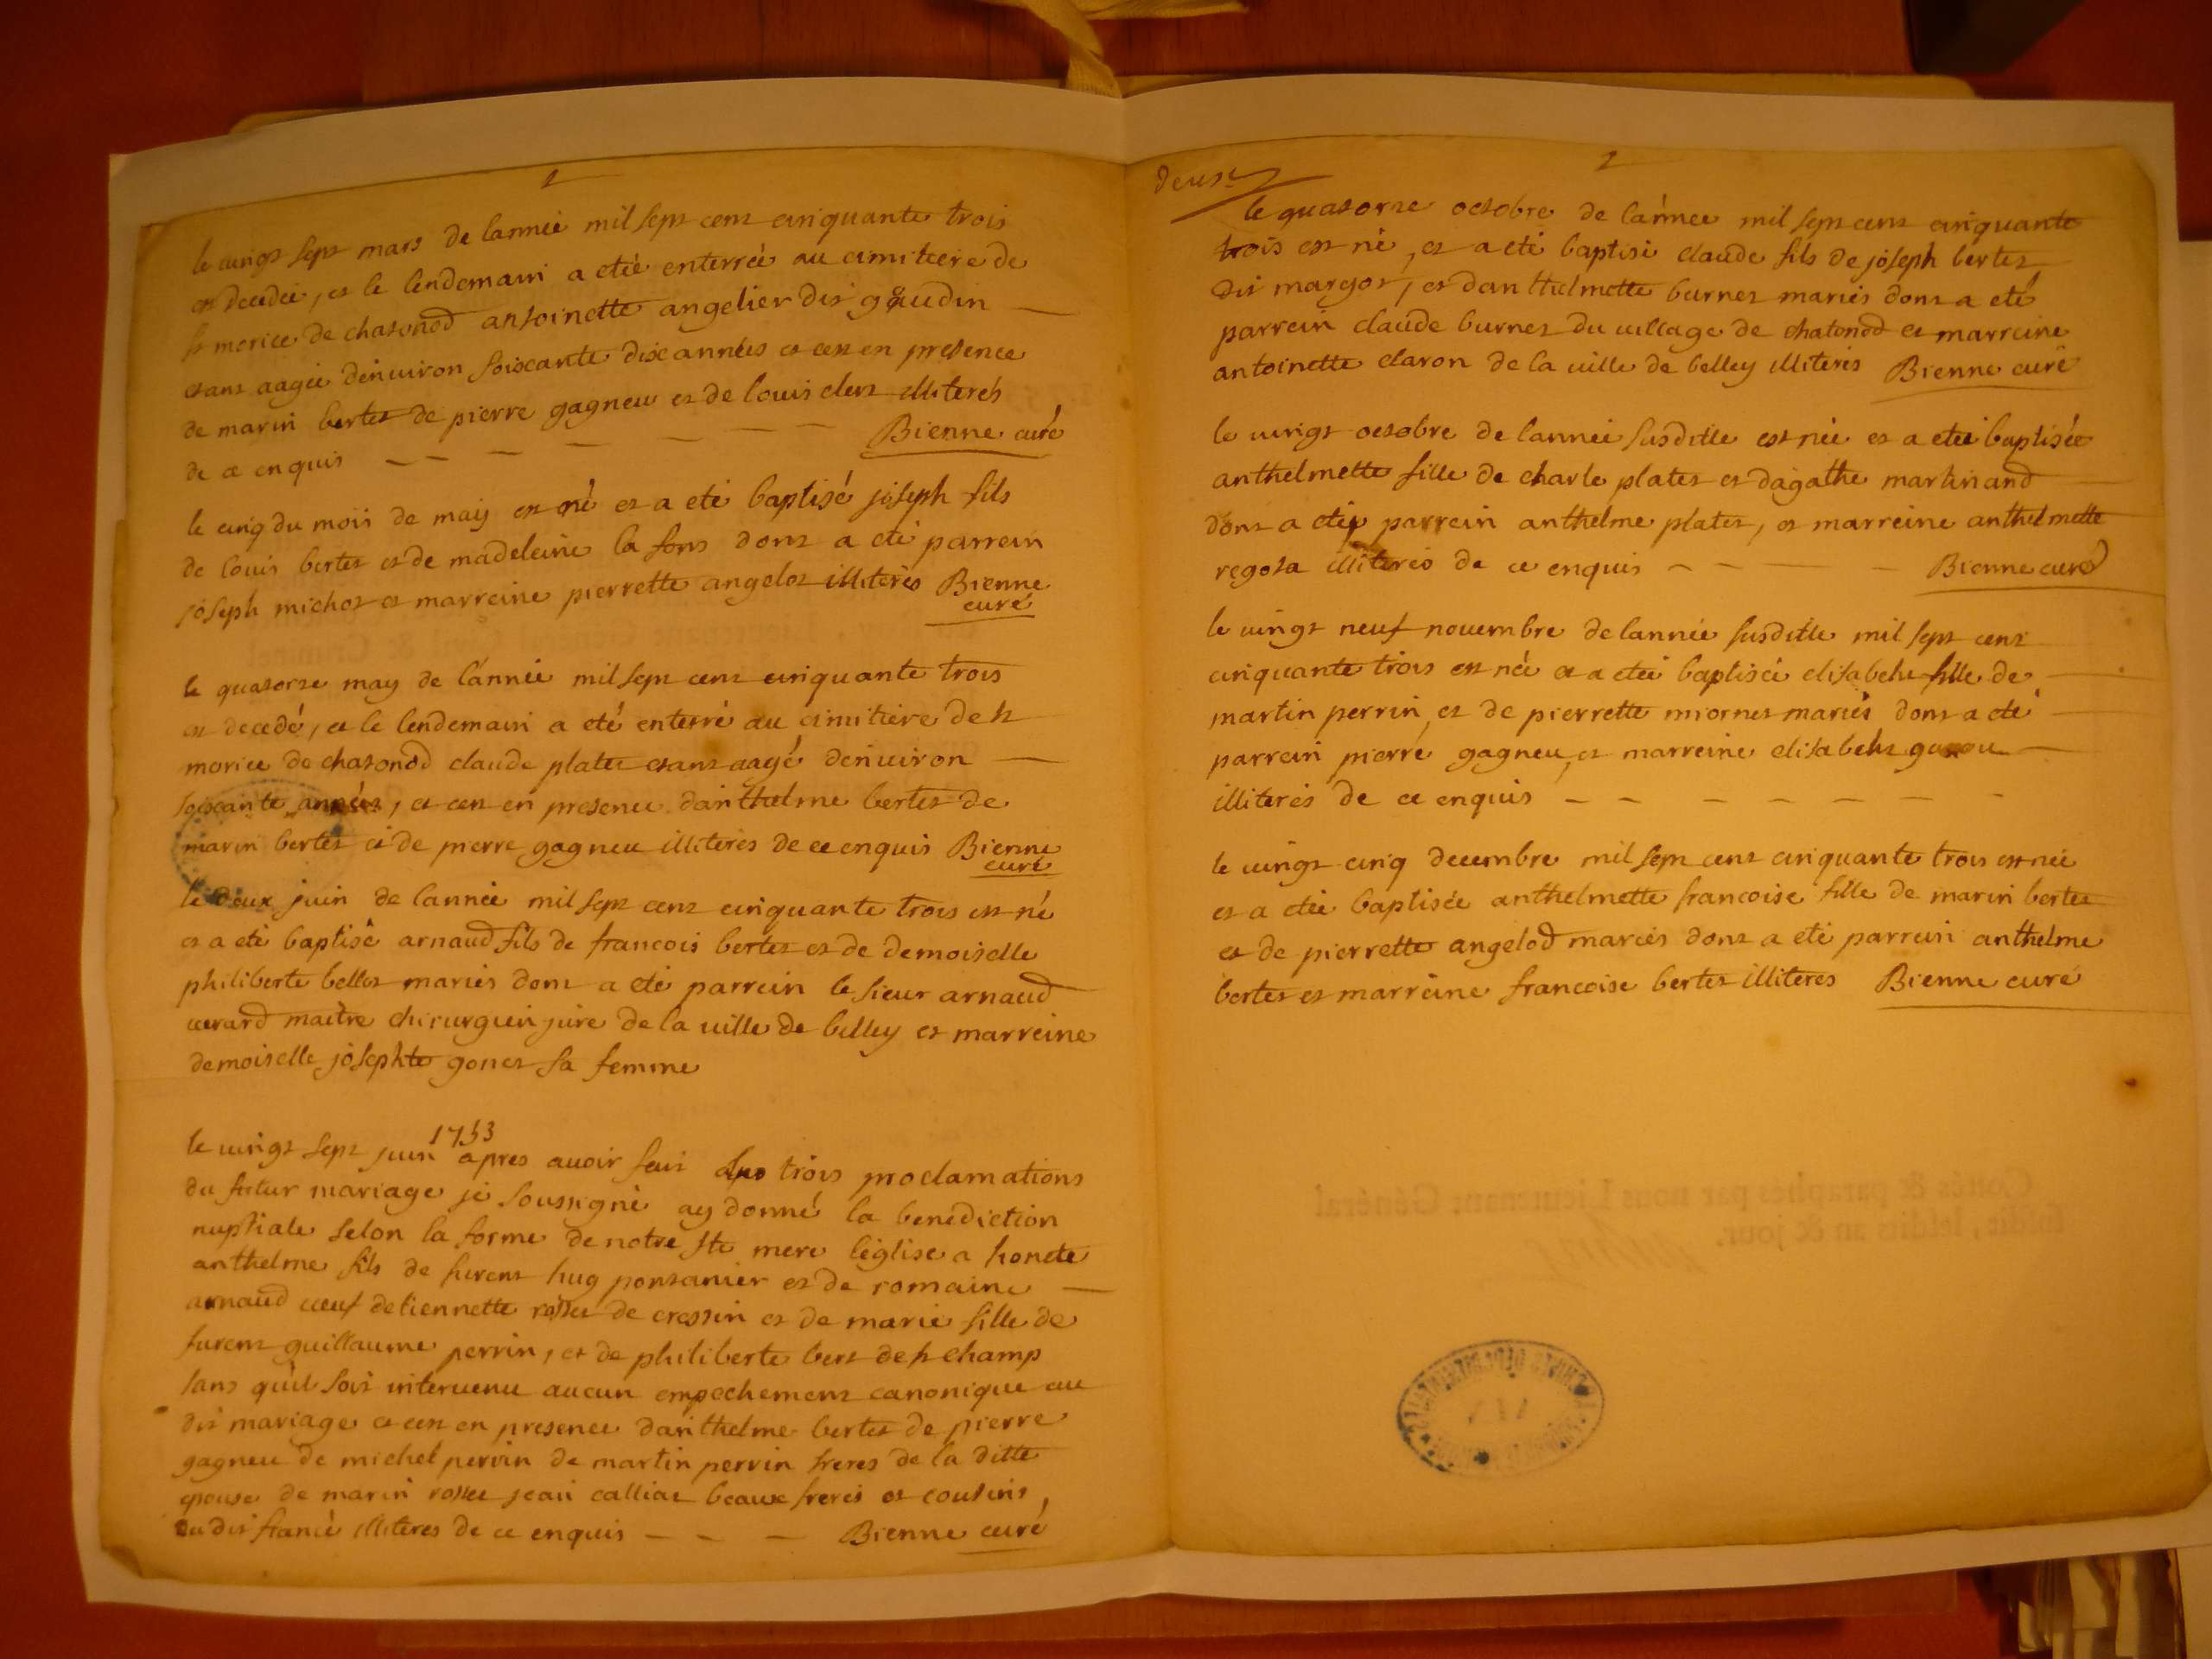 1
le vingt sept mars de lannée mil sept cent cinquante trois
est decedée, et le lendemain a etée enterrée au cimitiere de
st morice de chatonod antoinette angelier dit gaudin
etant aagée denuiron soixante dix années et cest en presence
de marin bertet de pierre gagneu et de louis clert illiterés
de ce enquis Bienne curé
le cinq du mois de may est né et a eté baptisé joseph fils
de louis bertet et de madeleine la font dont a eté parrein
joseph michot et marreine pierrette angelot illiterés Bienne
curé
le quatorze may de lannée mil sept cent cinquante trois
est decedé, et le lendemain a eté enterré au cimitiere de st
morice de chatonod claude platet etant aagé denuiron
soixante années, et cest en presence danthelme bertet de
marin bertet et de pierre gagneu illiterés de ce enquis Bienne
curé
le deux juin de lannée mil sept cent cinquante trois est né
et a eté baptisé arnaud fils de francois bertet et de demoiselle
philiberte bellet mariés dont a eté parrein le sieur arnaud
maitre chirurgien juré de la uille de belley et marreine
demoiselle josephte gonet sa femme
le vingt sept juin 1753 apres auoir fait les trois proclamations
du futur mariage je soussigné ay donné la benediction
nuptiale selon la forme de notre ste mere léglise a honete
anthelme fils de furent hug pontanier et de romaine
arnaud ueuf detiennette rosset de cressin et de marie fille de
furent guillaume perrin, et de philiberte bert de st champ
sans qu'il soit interuenu aucun empechement canonique au
dit mariage et cest en presence danthelme bertet de pierre
gagneu de michel perrin de martin perrin freres de la ditte
epouse de marin rosset jean calliat beaux freres et cousins
du dit illiteres de ce enquis Bienne curé
deux
2
le quatorze octobre de lannee mil sept cent cinquante
trois est né, et a eté baptisé claude fils de joseph bertet
dit margot, et danthelmette burnet mariés dont a eté
parrein claude burnet du uillage de chatonod et marreine
antoinette claron de la uille de belley illiterés Bienne curé
le vingt octobre de lannée susditte est née et a etée baptisée
anthelmette fille de charle platet et dagathe martinand
dont a eté parrein anthelme platet, et marreine anthelmette
regota illiterés de ce enquis Bienne curé
le vingt neuf nouembre de lannée susditte mil sept cent
cinquante trois est née et a etée baptisée elisabeht fille de
martin perrin, et de pierrette miornet mariés dont a eté
parrein pierre gagneu, et marreine elisabeht
illiterés de ce enquis
le vingt cinq decembre mil sept cent cinquante trois est née
et a etée baptisée anthelmette francoise fille de marin bertet
et de pierrette angelod mariés dont a eté parrein anthelme
bertet et marreine francoise bertet illiteres Bienne curé
Cottés & paraphés par nous Lieutenant Général
susdit, lesdits an & jour.